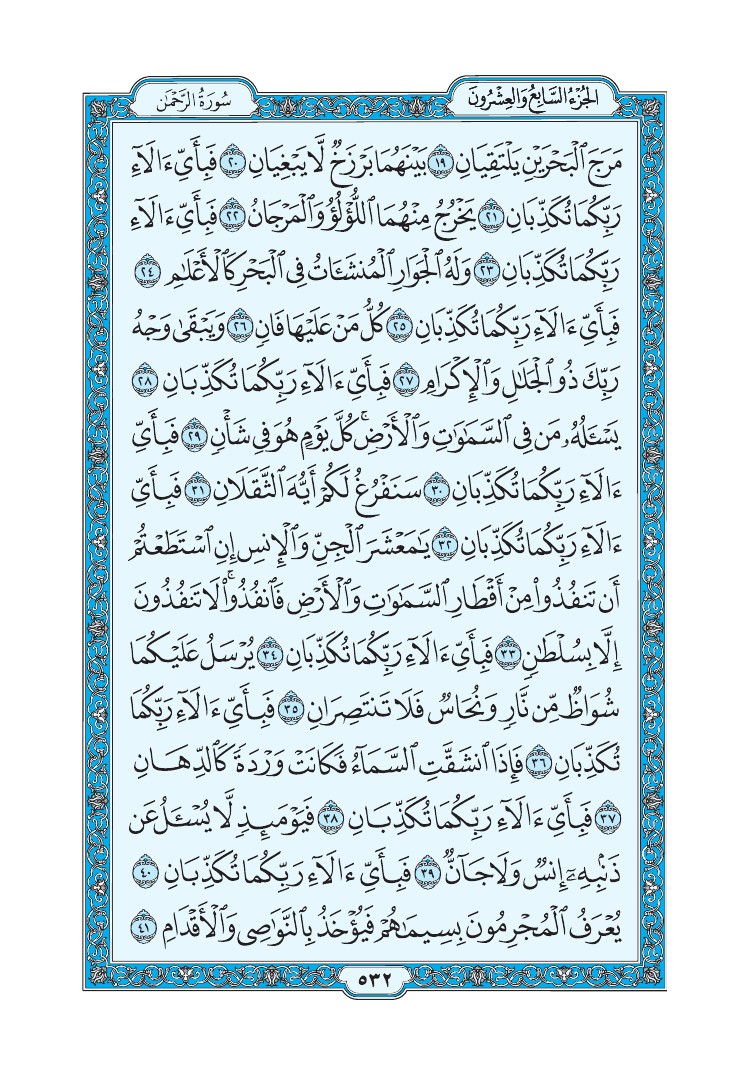 الجزء السابع والعشرون
سورة الرحمن
مَرَجَ ٱلْبَحْرَيْنِ يَلْتَقِيَانِ ١٩ بَيْنَهُمَا بَرْزَخٌ لَّا يَبْغِيَانِ ٢٠ فَبِأَيِّ ءَالَآءِ
رَبِّكُمَا تُكَذِّبَانِ ٢١ يَخْرُجُ مِنْهُمَا ٱللُّؤْلُؤُ وَٱلْمَرْجَانُ ٢٢ فَبِأَيِّ ءَالَآءِ
رَبِّكُمَا تُكَذِّبَانِ ٢٣ وَلَهُ ٱلْجَوَارِ ٱلْمُنشَـَٔاتُ فِى ٱلْبَحْرِ كَٱلْأَعْلَـٰمِ ٢٤
فَبِأَيِّ ءَالَآءِ رَبِّكُمَا تُكَذِّبَانِ ٢٥ كُلُّ مَنْ عَلَيْهَا فَانٍ ٢٦ وَيَبْقَىٰ وَجْهُ
رَبِّكَ ذُو ٱلْجَلَـٰلِ وَٱلْإِكْرَامِ ٢٧ فَبِأَيِّ ءَالَآءِ رَبِّكُمَا تُكَذِّبَانِ ٢٨
يَسْـَٔلُهُۥ مَن فِى ٱلسَّمَـٰوَٰتِ وَٱلْأَرْضِ ۚ كُلَّ يَوْمٍ هُوَ فِى شَأْنٍ ٢٩ فَبِأَيِّ
ءَالَآءِ رَبِّكُمَا تُكَذِّبَانِ ٣٠ سَنَفْرُغُ لَكُمْ أَيُّهَ ٱلثَّقَلَانِ ٣١ فَبِأَيِّ
ءَالَآءِ رَبِّكُمَا تُكَذِّبَانِ ٣٢ يَـٰمَعْشَرَ ٱلْجِنِّ وَٱلْإِنسِ إِنِ ٱسْتَطَعْتُمْ
أَن تَنفُذُوا۟ مِنْ أَقْطَارِ ٱلسَّمَـٰوَٰتِ وَٱلْأَرْضِ فَٱنفُذُوا۟ ۚ لَا تَنفُذُونَ
إِلَّا بِسُلْطَـٰنٍ ٣٣ فَبِأَيِّ ءَالَآءِ رَبِّكُمَا تُكَذِّبَانِ ٣٤ يُرْسَلُ عَلَيْكُمَا
شُوَاظٌ مِّن نَّارٍ وَنُحَاسٌ فَلَا تَنتَصِرَانِ ٣٥ فَبِأَيِّ ءَالَآءِ رَبِّكُمَا
تُكَذِّبَانِ ٣٦ فَإِذَا ٱنشَقَّتِ ٱلسَّمَآءُ فَكَانَتْ وَرْدَةً كَٱلدِّهَانِ
٣٧ فَبِأَيِّ ءَالَآءِ رَبِّكُمَا تُكَذِّبَانِ ٣٨ فَيَوْمَئِذٍ لَّا يُسْـَٔلُ عَن
ذَنۢبِهِۦٓ إِنسٌ وَلَا جَآنٌّ ٣٩ فَبِأَيِّ ءَالَآءِ رَبِّكُمَا تُكَذِّبَانِ ٤٠
يُعْرَفُ ٱلْمُجْرِمُونَ بِسِيمَـٰهُمْ فَيُؤْخَذُ بِٱلنَّوَٰصِى وَٱلْأَقْدَامِ ٤١
٥٣٢